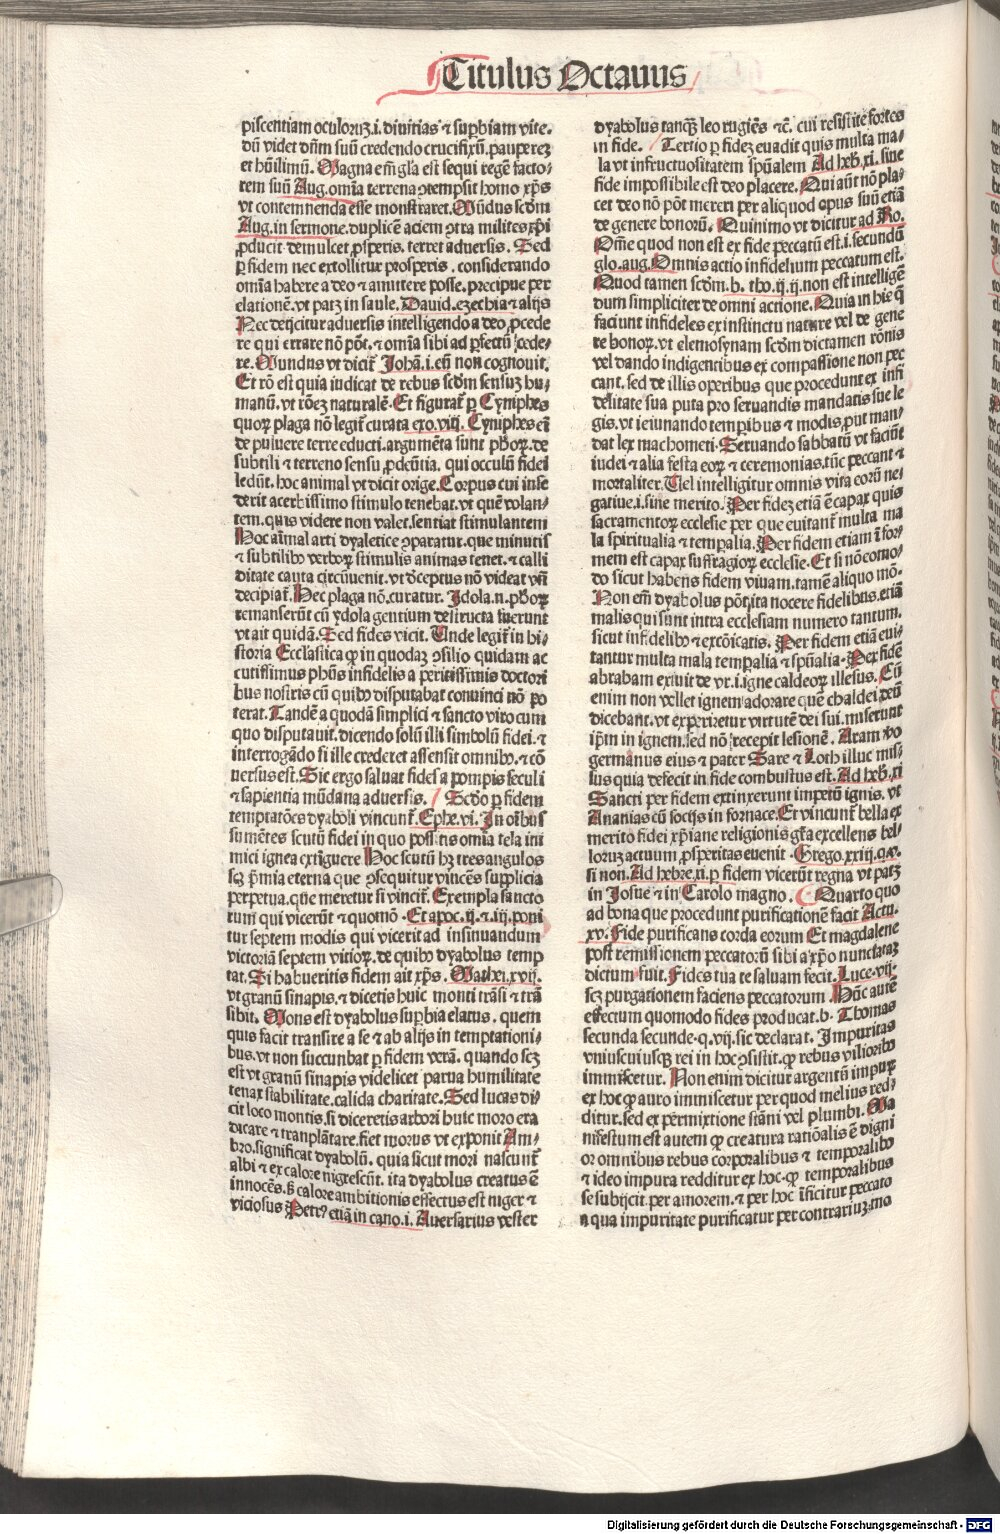 Titulus Octauus
piscentiam oculoruȝ.i.diuitias ⁊ suꝑbiam vite.
dū videt dñm suū credendo crucifixū.paupereȝ
et hūilimū. Magna em̄ gl̄a est sequi regē facto⸗
rem suū Aug.omīa terrena ↄtempsit homo xp̄s
vt contemnenda esse monstraret. Mūdus scd̄m
Aug.in sermone.duplicē aciem ↄtra milites xp̄i
ꝓducit demulcet ꝓsperis. terret aduersis. Sed
ꝑ fidem nec extollitur prosperis. considerando
omīa habere a deo ⁊ amittere posse. precipue per
elationē.vt patȝ in saule.Dauid.ezechia ⁊ alijs
Nec deijcitur aduersis intelligendo a deo ꝓcede
re qui errare nō pōt.⁊ omīa sibi ad ꝓfectū ꝓcede⸗
re. Mundus vt dicit Johā.i.eū non cognouit.
Et rō est quia iudicat de rebus scd̄m sensuȝ hu⸗
manū.vt rōeȝ naturalē. Et figurat̄ ꝑ Cyniphes
quoꝝ plaga nō legit̄ curata exo.viij. Cyniphes em̄
de puluere terre educti.argumēta sunt ph̄oꝝ.de
subtili ⁊ terreno sensu ꝓdeūtia. qui occulū fidei
ledūt.hoc animal vt dicit orige.Corpus cui inse
derit acerbissimo stimulo tenebat.vt quē volan⸗
tem.quis videre non valet.sentiat stimulantem
Hoc aīmal arti dyaletice ↄparatur.que minutis
⁊ subtilibꝰ verboꝝ stimulis animas tenet.⁊ calli
ditate cauta circūuenit.vt dceptus nō videat vn̄
decipiat̄. Hec plaga nō.curatur. Idola.n.ph̄oꝝ
remanserūt cū ydola gentium destructa fuerunt
vt ait quidā.Sed fides vicit. Unde legit̄ in hi⸗
storia Ecclastica ꝙ in quodaȝ ↄsilio quidam ac
cutissimus ph̄us infidelis a peritissimis doctori
bus nostris cū quibꝰ disputabat conuinci nō po
terat.Tandē a quodā simplici ⁊ sancto viro cum
quo disputauit.dicendo solū illi simbolū fidei.⁊
interrogādo si ille crederet assensit omnibꝰ.⁊ cō
uersus est. Sic ergo saluat fides a pompis seculi
⁊ sapientia mūdana aduersis. Scd̄o ꝑ fidem
temptatōes dyaboli vincunt̄.Ephe.vi. In oībus
sumētes scutū fidei in quo possitis omīa tela ini
mici ignea extīguere Hoc scutū hȝ tres angulos
scȝ p̄mia eterna que ↄsequitur vincēs supplicia
perpetua.que meretur si vincit̄. Exempla sancto
rum qui vicerūt ⁊ quomō. Et apoc.ij.⁊.iij.poni
tur septem modis qui vicerit ad insinuandum
victoriā septem vitioꝝ.de quibꝰ dyabolus temp
tat.Si habueritis fidem ait xp̄s. Mathei.xvij.
vt granū sinapis.⁊ dicetis huic monti trāsi ⁊ trā
sibit. Mons est dyabolus suꝑbia elatus. quem
quis facit transire a se ⁊ ab alijs in temptationi⸗
bus.vt non succunbat ꝑ fidem verā. quando scȝ
est vt granū sinapis videlicet parua humilitate
tenax stabilitate.calida charitate. Sed lucas di⸗
cit loco montis.si diceretis arbori huic moro era
dicare ⁊ tranplātare.fiet morus vt exponit Am⸗
bro.significat dyabolū. quia sicut mori nascunt̄
albi ⁊ ex calore nigrescūt. ita dyabolus creatus ē
innocēs.s̄ calore ambitionis effectus est niger ⁊
viciosus Petrꝰ etiā in cano.i. Aduersarius vester
dyabolus tanqȝ leo rugiēs ⁊c̄. cui resistite fortes
in fide. Tertio ꝑ fideȝ euadit quis multa ma⸗
la vt infructuositatem spūalem Ad heb̄.xi. sine
fide impossibile est deo placere. Qui aūt nō pla⸗
cet deo nō pōt mereri per aliquod opus suū etiā
de genere bonorū. Quinimo vt dicitur ad Ro.
Om̄e quod non est ex fide peccatū est.i.secundū
glo.aug.Omnis actio infidelium peccatum est.
Quod tamen scd̄m.b. tho.ij.ij.non est intelligē
dum simpliciter de omni actione. Quia in hie q̄
faciunt infideles ex instinctu nature vel de gene
re bonoꝝ.vt elemosynam scd̄m dictamen rōnis
vel dando indigentibus ex compassione non pec
cant.sed de illis operibus que procedunt ex infi
delitate sua puta pro seruandis mandatis sue le
gis.vt ieiunando tempibus ⁊ modis.put man⸗
dat lex machometi. Seruando sabbatū vt faciūt
iudei ⁊ alia festa eoꝝ ⁊ ceremonias.tūc peccant ⁊
mortaliter. Uel intelligitur omnis vita eorū ne⸗
gatiue.i.sine merito. Per fideȝ etiā ē capax quis
sacramentoꝝ ecclesie per que euitant̄ multa ma
la spiritualia ⁊ temꝑalia. Per fidem etiam īfor⸗
mem est capax suffragioꝝ ecclesie. Et si nō eomo⸗
do sicut habens fidem viuam.tamē aliquo mō.
Non em̄ dyabolus pōt ita nocere fidelibus.etiā
malis qui sunt intra ecclesiam numero tantum.
sicut infidelibꝰ ⁊ excōicatis. Per fidem etiā eui⸗
tantur multa mala temꝑalia ⁊ spūalia. Per fidē
abraham exiuit de vr.i.igne caldeoꝝ illesus. Cū
enim non vellet ignem adorare quē chaldei deū
dicebant.vt experiretur virtutē dei sui.miserunt
ip̄m in ignem.sed nō recepit lesionē. Aram vo
germanus eius ⁊ pater Sare ⁊ Loth illuc mis⸗
sus quia defecit in fide combustus est. Ad heb̄.xi
Sancti per fidem extinxerunt impetū ignis. vt
Ananias cū socijs in fornace.Et vincunt̄ bella ex
merito fidei xp̄iane religionis gr̄a excellens bel⸗
loruȝ actuum ꝓsperitas euenit. Grego.xxiij.q.v.
si non.Ad hebre.xi.ꝑ fidem vicerūt regna vt patȝ
in Josue ⁊ in Carolo magno. Quarto quo
ad bona que procedunt purificationē facit Actu.
xv. Fide purificans corda eorum Et magdalene
post remissionem peccatorū sibi a xp̄o nunctataȝ
dictum fuit. Fides tua te saluam fecit. Luce.vij.
scȝ purgationem faciens peccatorum Hūc autē
effectum quomodo fides producat.b. Thomas
secunda secunde.q.vij.sic declarat. Impuritas
vniuscuiusqȝ rei in hoc ↄsistit.ꝙ rebus vilioribꝰ
immiscetur. Non enim dicitur argentū impuꝝ
ex hoc ꝙ auro immiscetur per quod melius red⸗
ditur.sed ex permixtione stāni vel plumbi. Ma
nifestum est autem ꝙ creatura ratiōalis ē digni
or omnibus rebus corporalibus ⁊ temporalibꝰ
⁊ ideo impura redditur ex hoc.ꝙ temporalibus
se subijcit per amorem.⁊ per hoc īficitur peccato
a qua impuritate purificatur per contrariuȝ.mo
Digitalisierung gefördert durch die Deutsche Forschungsgemeinschaft - DFG